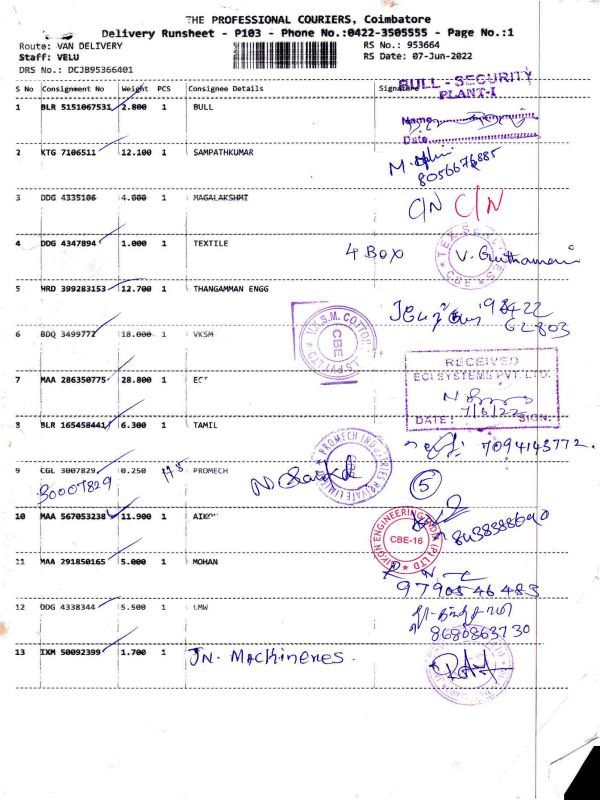 THE PROFESSIONAL COURIERS, Coimbatore
Delivery Runsheet - P103 - Phone No.:0422-3505555 - Page No.:1
Route: VAN DELIVERY RS No.: 953664
Staff: VELU RS Date: 07-Jun-2022
DRS No.: DCJB95366401
S No Consignment No Weight PCS Consignee Details Signature
BULL - SECURITY
PLANT-I
1 BLR 5151067531 2.800 1 BULL
Name
Date
2 KTG 7106511 12.100 1 SAMPATHKUMAR
8056676885
3 DDG 4335106 4.000 1 MAGALAKSHMI C/N C/N
4 DDG 4347894 1.000 1 TEXTILE 4 BOX
5 HRD 399283153 12.700 1 THANGAMMAN ENGG
98422
62803
6 BDQ 3499772 18.000 1 VKSM
V.K.S.M. COTTON
CBE
RECEIVED
ECI SYSTEMS PVT. LTD.
7 MAA 286350775 28.800 1 ECI
7/6/22
DATE: SIGN:
8 BLR 165458441 6.300 1 TAMIL
7094143772.
PROMECH INDUSTRIES PRIVATE LIMITED
9 CGL 3007829 0.250 1 PROMECH
30007829 11.5 5
10 MAA 567053238 11.900 1 AIKON
8438388690
CBE-16
11 MAA 291850165 5.000 1 MOHAN
9790546483
12 DDG 4338344 5.500 1 LMW
8680863730
13 IXM 50092399 1.700 1 JN. MACHINERIES.